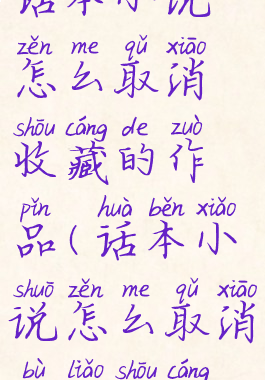 话本小说
zěn me qǔ xiāo
怎么取消
shōu cáng de zuò
收藏的作
pǐn huà běn xiǎo
品(话本小
shuō zěn me qǔ xiāo
说怎么取消
bù liǎo shōu cáng